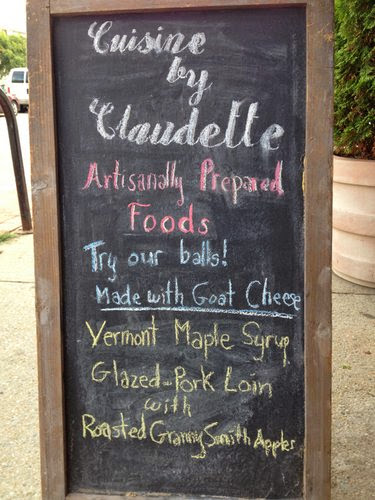 Cuisine
by
Claudette
Artisanally Prepared
Foods
Try our balls!
Made with Goat Cheese
Vermont Maple Syrup
Glazed-Pork Loin
with
Roasted Granny Smith Apples